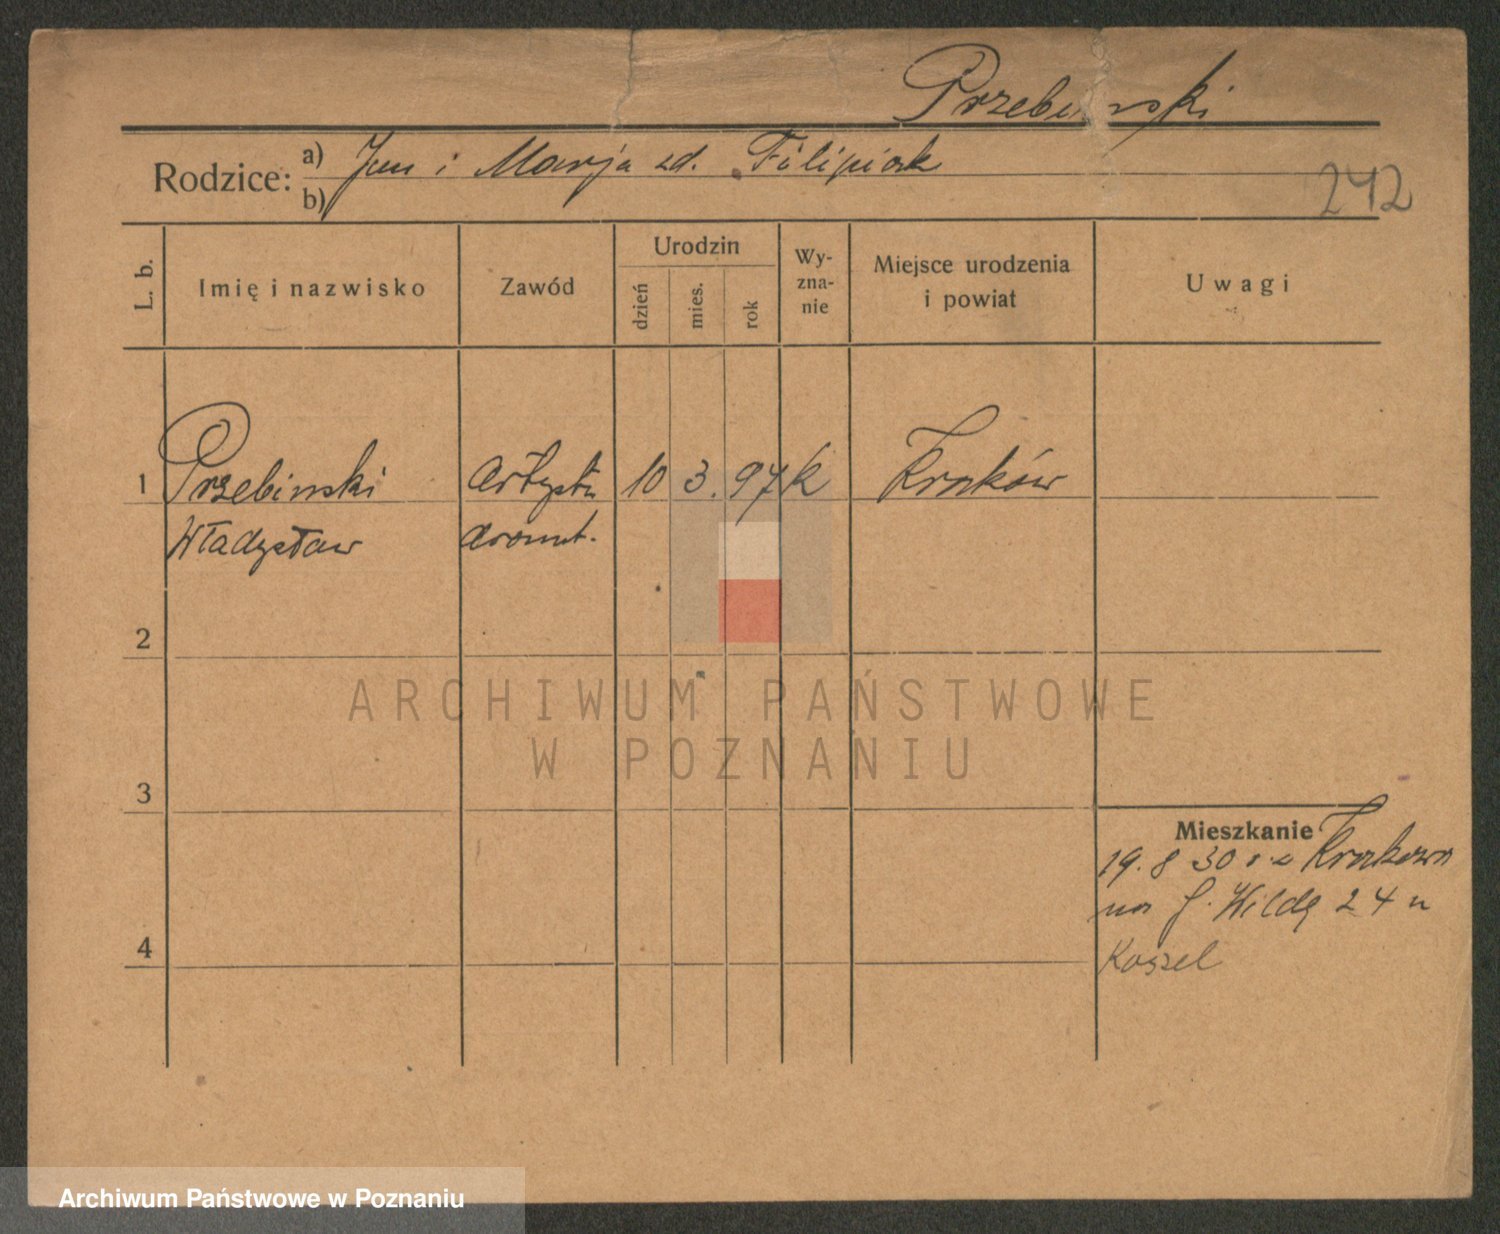 Przebinski
Rodzice: a) Jan i Marja zd. Filipiak
b)
242
L. b.
Imię i nazwisko
Zawód
Urodzin
dzień
mies.
rok
Wy-
zna-
nie
Miejsce urodzenia
i powiat
Uwagi
1 Przebinski Artysta 10 3. 97 k Kraków
Władysław dramt.
2
ARCHIWUM PAŃSTWOWE
W POZNANIU
3
Mieszkanie
19. 8 30 z Krakowa
na G. Wildę 24 u
Kaszel
4
Archiwum Państwowe w Poznaniu